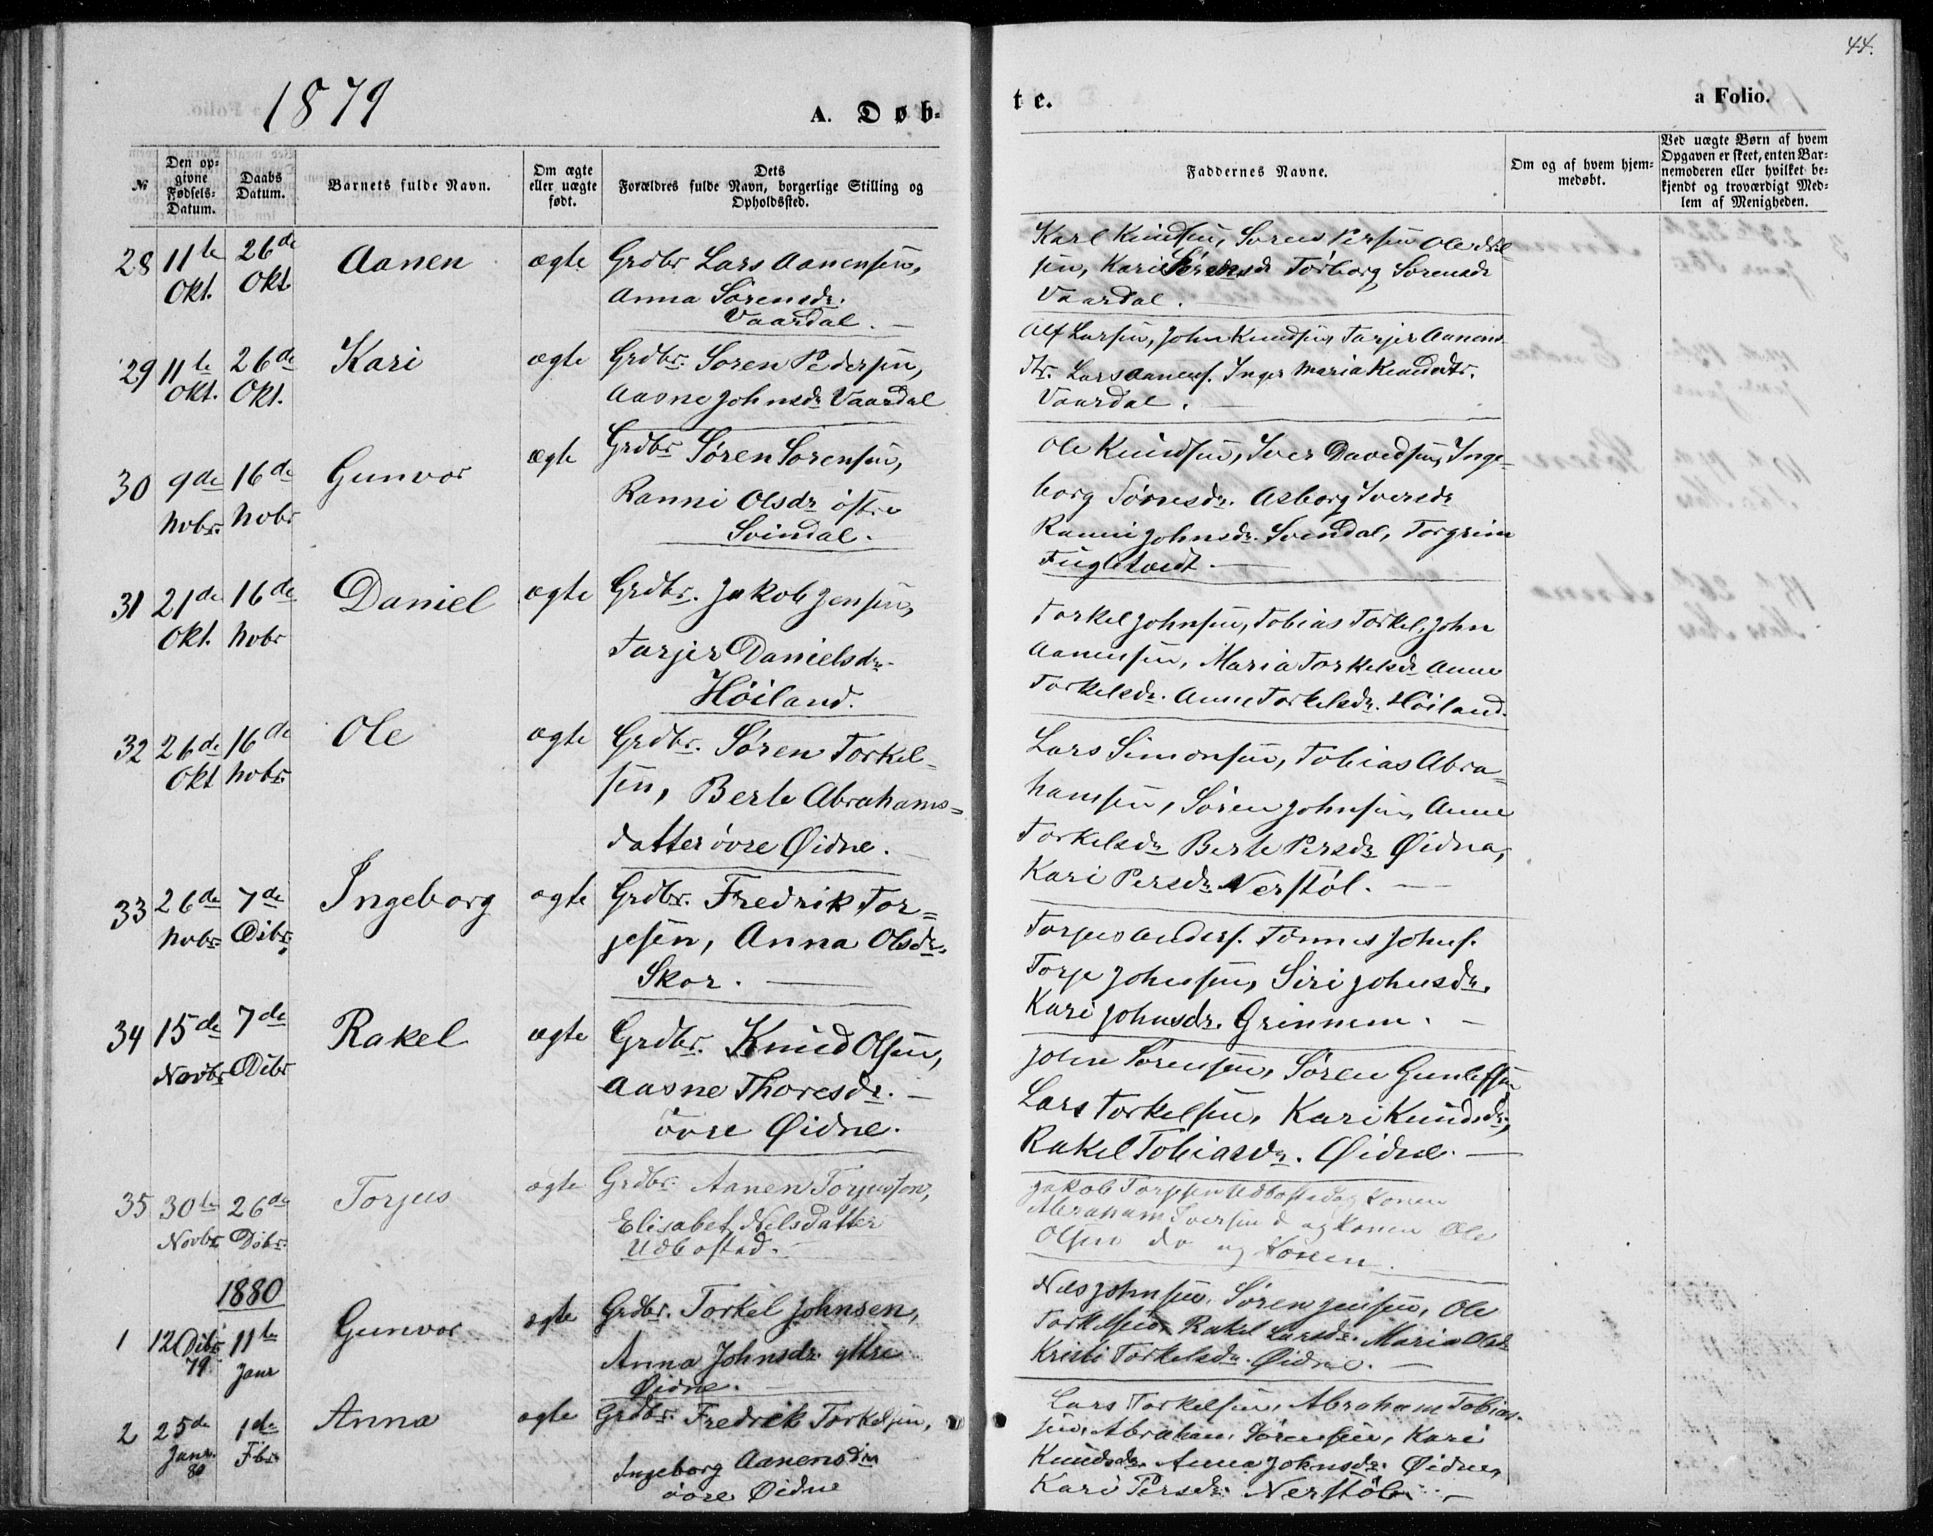 44.
1879
A. Døb-
te.
a Folio.
№
Den op-
givne
Fødsels-
Datum.
Daabs
Datum.
Barnets fulde Navn.
Om ægte
eller uægte
født.
Dets
Forældres fulde Navn, borgerlige Stilling og
Opholdssted.
Faddernes Navne.
Om og af hvem hjem-
medøbt.
Ved uægte Børn af hvem
Opgaven er skeet, enten Bar-
nemoderen eller hvilket be-
kjendt og troværdigt Med-
lem af Menigheden.
28 11te Okt. 26de Okt. Aanen ægte Grdbr Lars Aanensen,
Anna Sørensdr.
Vaardal.
Karl Knudsen, Søren Persen Ole Niel
sen, Kari Torborg Sørensdr
Vaardal.
29 11te Okt. 26de Okt. Kari ægte Grdbr. Søren Pedersen,
Aasne Johnsdr Vaardal
Alf Larsen, John Knudsen, Tarjer Aanens
dtr. Lars Aanens. Inger Maria Knudsdtr.
Vaardal.
30 9de Nobr. 16de Nobr Gunvor ægte Grdbr Søren Sørensen,
Ranni Olsdr østre
Svindal.
Ole Knudsen, Iver Davidsen, Inge-
borg Tønnesdr. Asborg Iversdr
Ranni Johnsdr. Svindal, Torgrim
Fuglestvedt.
31 21de Okt. 16de Nobr Daniel ægte Grdbr. Jakob Jensen,
Tarjer Danielsdr.
Høiland.
Torkel Johnsen, Tobias Torkel. John
Aanensen, Maria Torkelsdr Anne
Torkelsdr. Anne Torkelsdr. Høiland.
32 26de Okt 16de Nobr. Ole ægte Grdbr. Søren Torkel-
sen, Berte Abrahams-
datter øvre Øidne.
Lars Simonsen, Tobias Abra-
hamsen, Søren Johnsen, Anne
Torkelsdr Berte Persdr Øidna,
Kari Persdr Nerstøl.
33 26de Nobr 7de Dcbr. Ingeborg ægte Grdbr. Fredrik Tor-
jesen, Anna Olsdr.
Skor.
Torjus Anders. Tønnes Johns.
Torje Johnsen, Siri Johnsdr.
Kari Johnsdr. Grinnem.
34 15de Novbr 7de Dcbr Rakel ægte Grdbr. Knud Olsen,
Aasne Thoresdr.
øvre Øidne.
John Sørensen, Søren Gunlefsen
Lars Torkelsen, Kari Knudsdr,
Rakel Tobiasdr. Øidne.
35 30te Novbr 26de Dcbr. Torjus ægte Grdbr. Aanen Torjussen,
Elisabet Nilsdatter
Udbostad.
Jakob Udbostad og Konen
Abraham Iversen d og Konen Ole
Olsen do og Konen.
1880
1 12 Dcbr. 79. 11te Janr Gunvor ægte Grdbr. Torkel Johnsen,
Anna Johnsdr. yttre
Øidne.
Nils Johnsen, Søren Jensen, Ole
Torkelsen Rakel Larsdr. Maria Olsdr
Kristi Torkelsdr. Øidne.
2 25de Janr. 80 1de Fbr. Anna ægte Grdbr. Fredrik Torkelsen,
Ingeborg Aanensdr
øvre Øidne
Lars Torkelsen, Abraham Tobias-
sen, Abraham Sørensen, Kari
Knudsdr. Anna Johnsdr. Øidne,
Kari Persdr. Nerstøl.